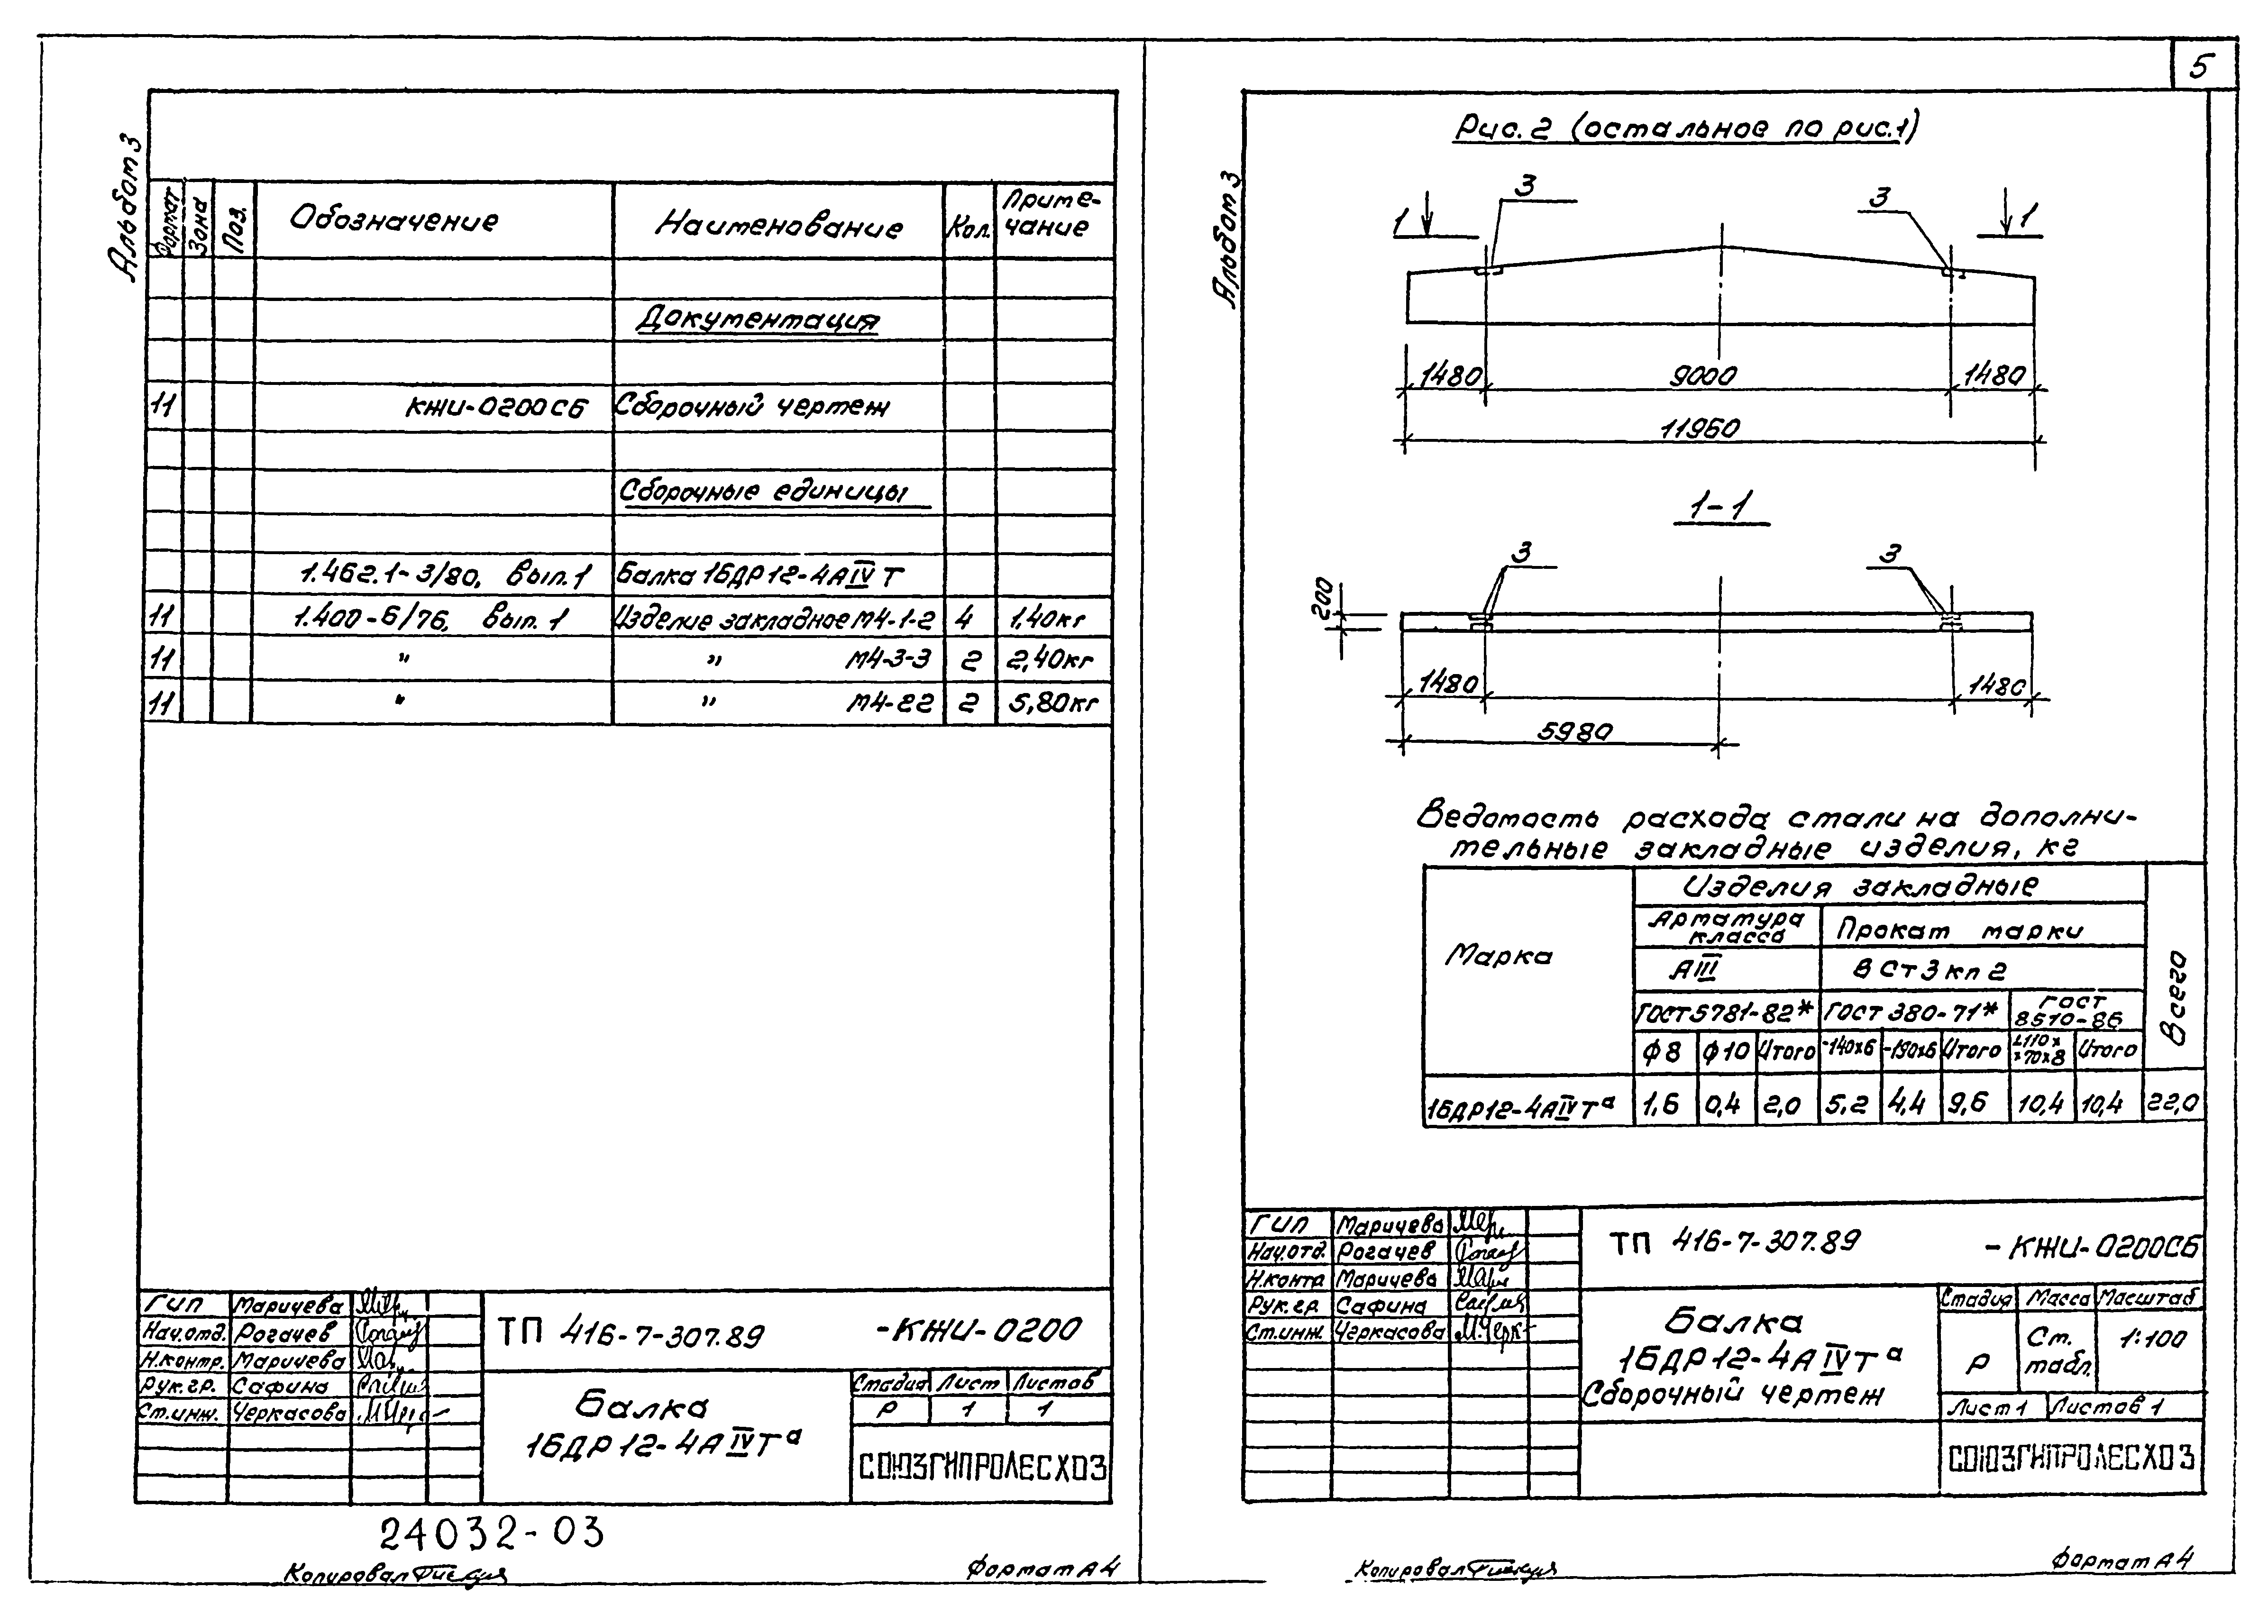 5
Альбом 3
Формат Зона Поз. Обозначение Наименование Кол. Приме-
чание
Документация
11 КЖИ-0200СБ Сборочный чертеж
Сборочные единицы
1.462.1-3/80, вып.1 Балка 1БДР12-4АIVТ
11 1.400-6/76, вып.1 Изделие закладное М4-1-2 4 1,40кг
11 " " М4-3-3 2 2,40кг
11 " " М4-22 2 5,80кг
ГИП Маричева
Нач.отд. Рогачев
Н.контр. Маричева
Рук.гр. Сафина
Ст.инж. Черкасова
ТП 416-7-307.89 -КЖИ-0200
Балка
1БДР12-4АIVТа
Стадия Лист Листов
Р 1 1
СОЮЗГИПРОЛЕСХОЗ
24032-03
Копировал
Формат А4
Альбом 3
Рис.2 (остальное по рис.1)
3 3
1 1
1480 9000 1480
11960
1-1
3 3
200
1480 1480
5980
Ведомость расхода стали на дополни-
тельные закладные изделия, кг
Марка Изделия закладные Всего
Арматура
класса Прокат марки
АIII ВСт3кп2
ГОСТ5781-82* ГОСТ 380-71* ГОСТ
8510-86
ф8 ф10 Итого -140х6 -190х6 Итого L110х
х70х8 Итого
1БДР12-4АIVТа 1,6 0,4 2,0 5,2 4,4 9,6 10,4 10,4 22,0
ГИП Маричева
Нач.отд. Рогачев
Н.контр Маричева
Рук.гр. Сафина
Ст.инж. Черкасова
ТП 416-7-307.89 -КЖИ-0200СБ
Балка
1БДР12-4АIVТа
Сборочный чертеж
Стадия Масса Масштаб
Р Ст.
табл. 1:100
Лист 1 Листов 1
СОЮЗГИПРОЛЕСХОЗ
Копировал
Формат А4